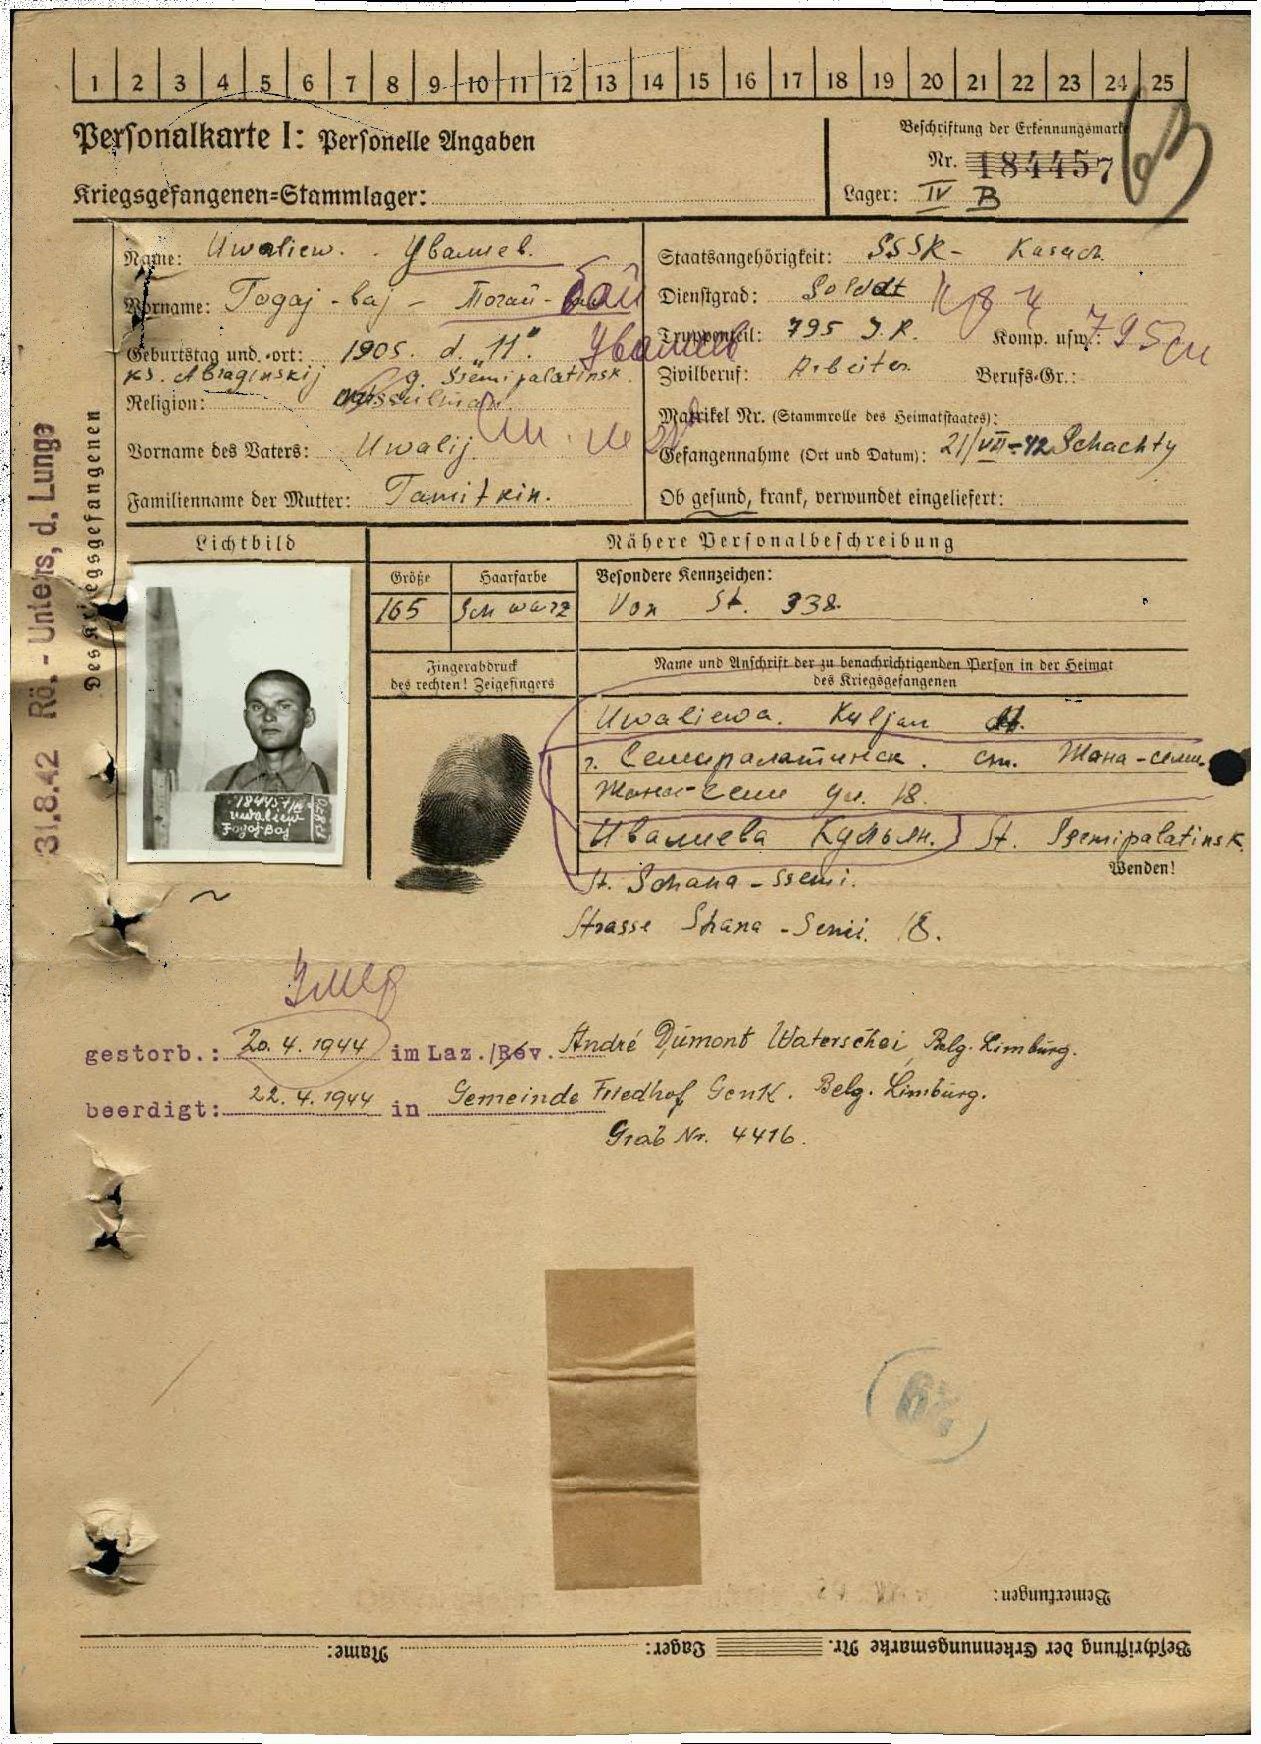 1 2 3 4 5 6 7 8 9 10 11 12 13 14 15 16 17 18 19 20 21 22 23 24 25
Personalkarte I: Personelle Angaben
Kriegsgefangenen=Stammlager:
Beschriftung der Erkennungsmarke
Nr. 184457
Lager: IV B
63
Name: Uwaliew. Увалиев.
Vorname: Togaj-baj - Тогай-бай
Geburtstag und -ort: 1905. d. "11".
Увалиев
ks. Abraginskij g. Ssemipalatinsk
Religion: Mussulman
Vorname des Vaters: Uwalij.
Familienname der Mutter:
Staatsangehörigkeit: SSSR - Kasach
Dienstgrad: Soldat
Truppenteil: 795 J.R. Komp. usw.: 795
Zivilberuf: Arbeiter Berufs-Gr.:
Matrikel Nr. (Stammrolle des Heimatstaates):
Gefangennahme (Ort und Datum): 21/VII-42 Schachty
Ob gesund, krank, verwundet eingeliefert:
31.8.42 Rö.-Unters. d. Lunge
Des Kriegsgefangenen
Lichtbild
Nähere Personalbeschreibung
Größe
Haarfarbe
Besondere Kennzeichen:
165
Schwarz
Von St. 338.
Fingerabdruck
des rechten! Zeigefingers
Name und Anschrift der zu benachrichtigenden Person in der Heimat
des Kriegsgefangenen
Uwaliewa. Kuljan
г. Семипалатинск. ст. Жана-семи.
Жана-Семи ул. 18.
Увалиева Кульян. St. Ssemipalatinsk.
Wenden!
St. Schana-Ssemi.
Strasse Shana-Semi. 18.
184457
Uwaliew
Togaj-Baj
Умер
gestorb.: 20.4.1944 im Laz./Rev. André Dumont Waterschei, Belg. Limburg.
beerdigt: 22.4.1944 in Gemeinde Friedhof Genk. Belg. Limburg.
Grab Nr. 4416.
Bemerkungen:
Beschriftung der Erkennungsmarke Nr. Lager: Name: